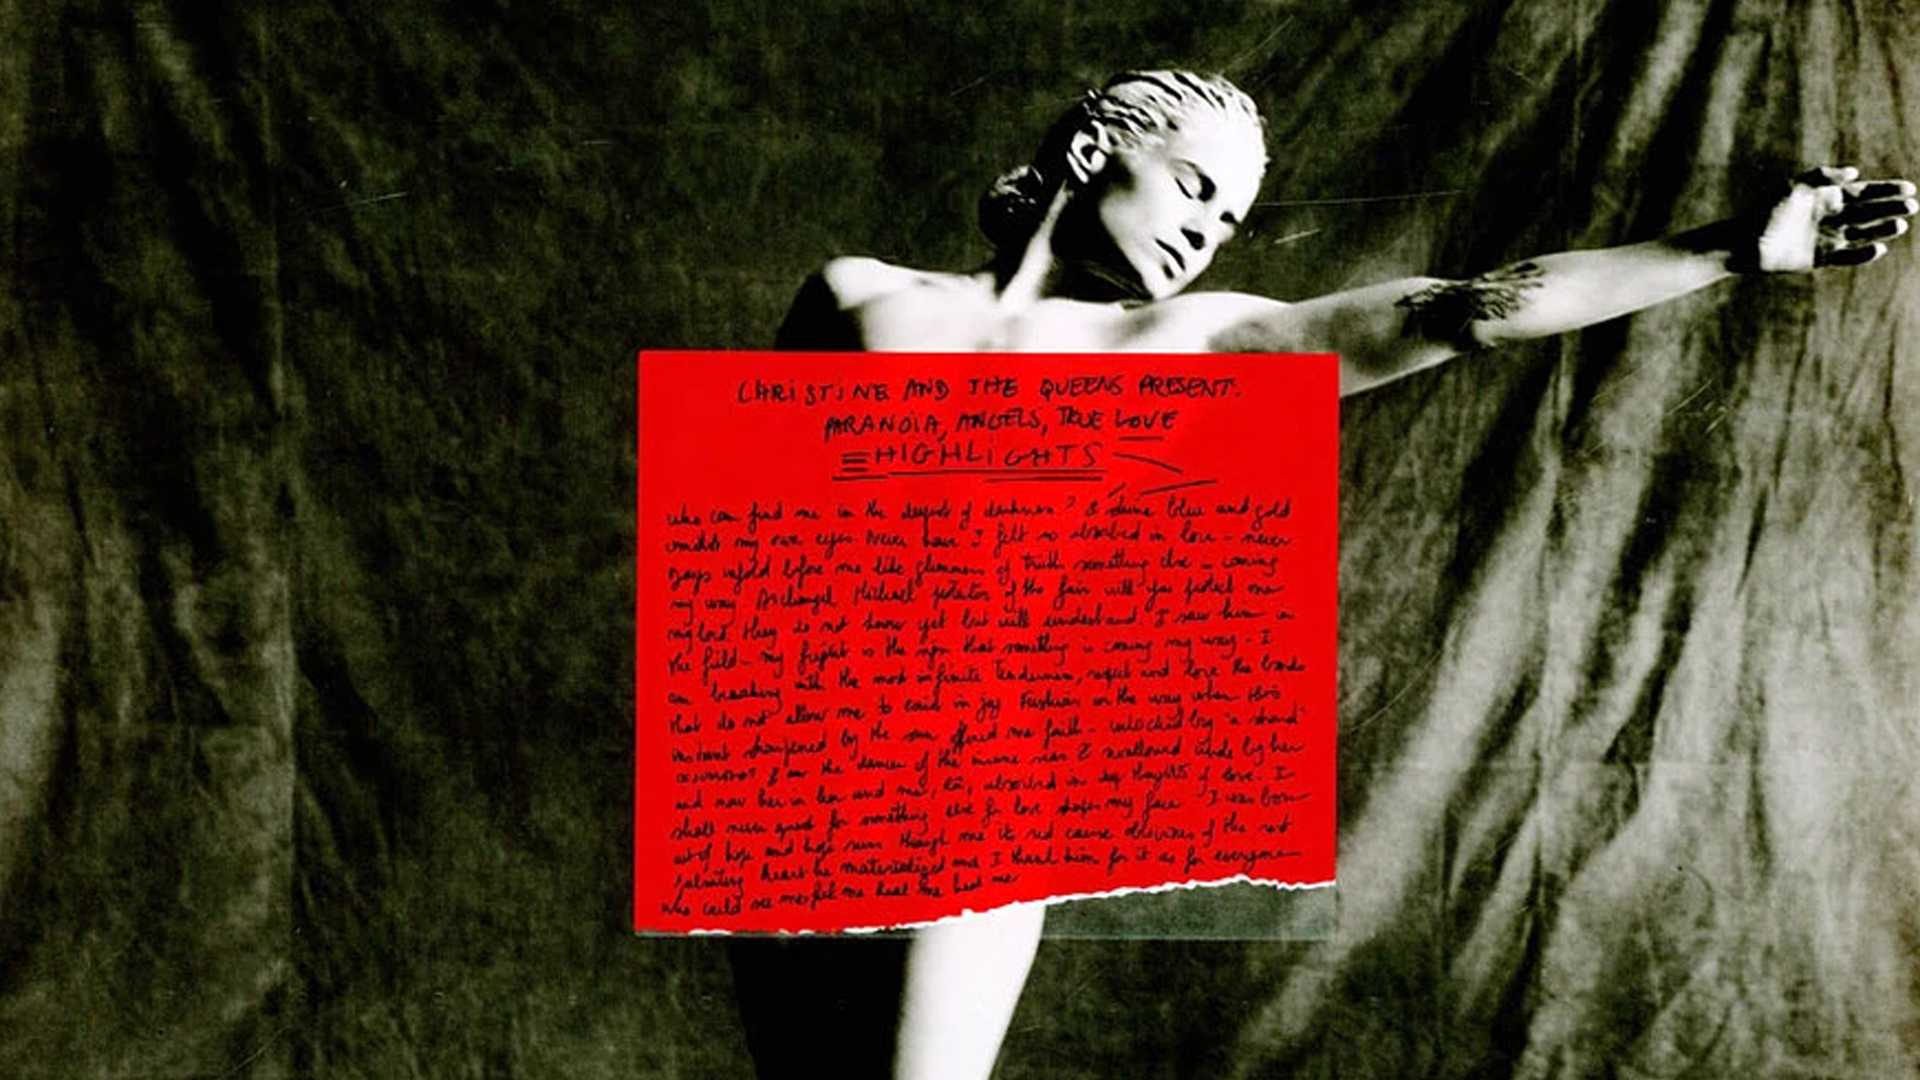 CHRiSTiNE AND THE QUEENS PRESENT:
PARANOÏA, ANGELS, TRUE LOVE
HIGHLiGHTS
who can find me in the deepest of darkness? A divine blue and gold
amidst my own eyes. Never have I felt so absorbed in love - never
Days unfold before me like glimmers of truth something else - coming
my way Archangel Michael protector of the fair will you protect me
my lord, they do not know yet but will understand I saw him in
the field - my fright is the sign that something is coming my way - I
am breaking with the most infinite tenderness, respect and love the bonds
that do not allow me to exist in joy on the way when this
instant sharpened by the sun offered me faith - unlocked by "a shard"
I am the dancer of the insane I swallowed by her
and now her in him and me, absorbed in thoughts of love. I
shall never for something else for love shapes my face I was born
out of hope and hope runs through me its red cause oblivious of the rest
heart he materialized and I thank him for it as for everyone
who could see me feel me heal me